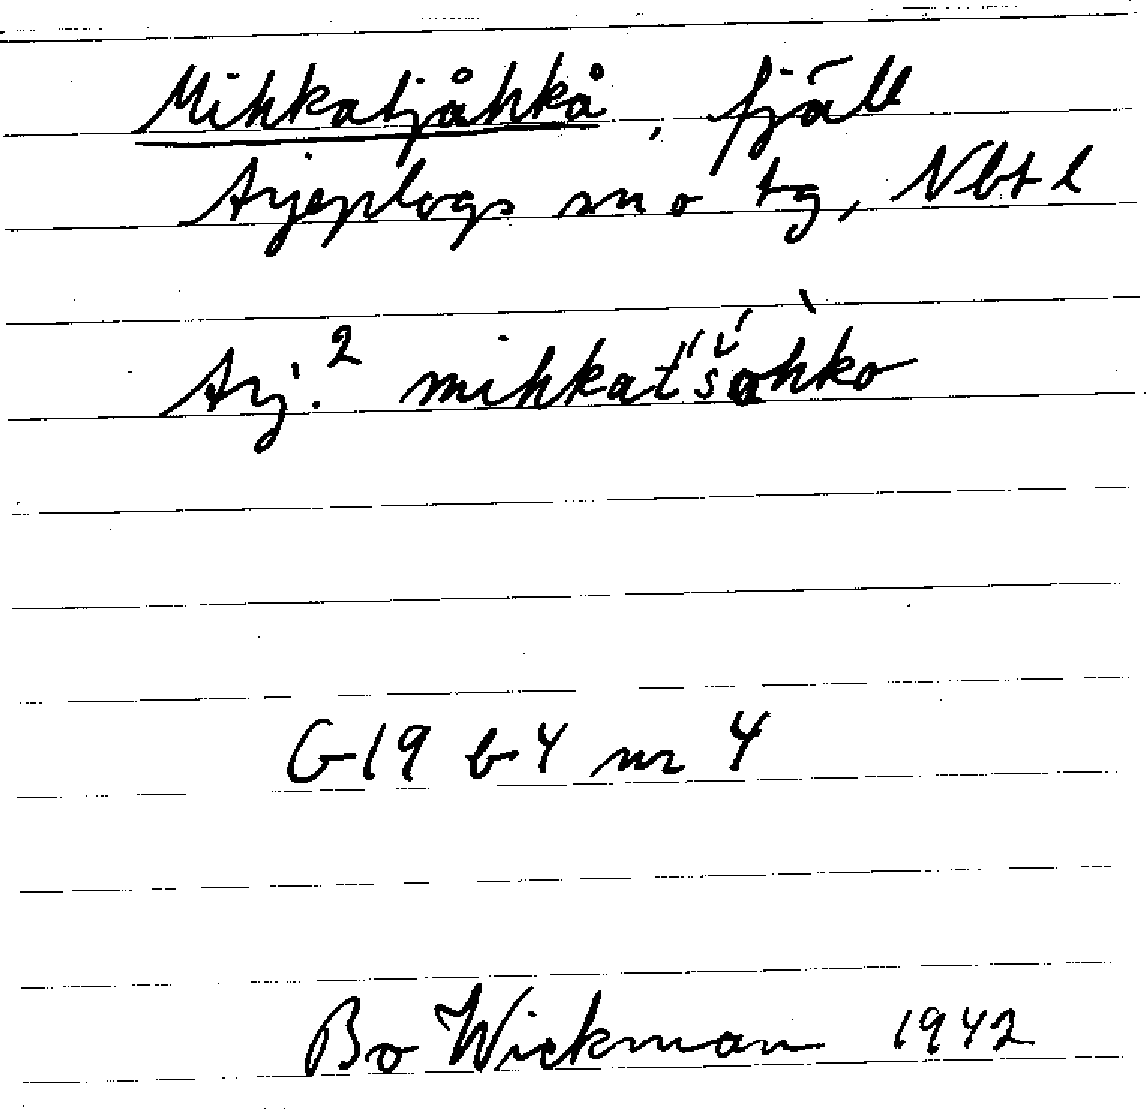 Mihkatjåhkå, fjäll
Arjeplogs sn o tg, Nbt l
Arj.² mihkat́š́ŏ́hkò
G19 b4 nr 4
Bo Wickman 1942